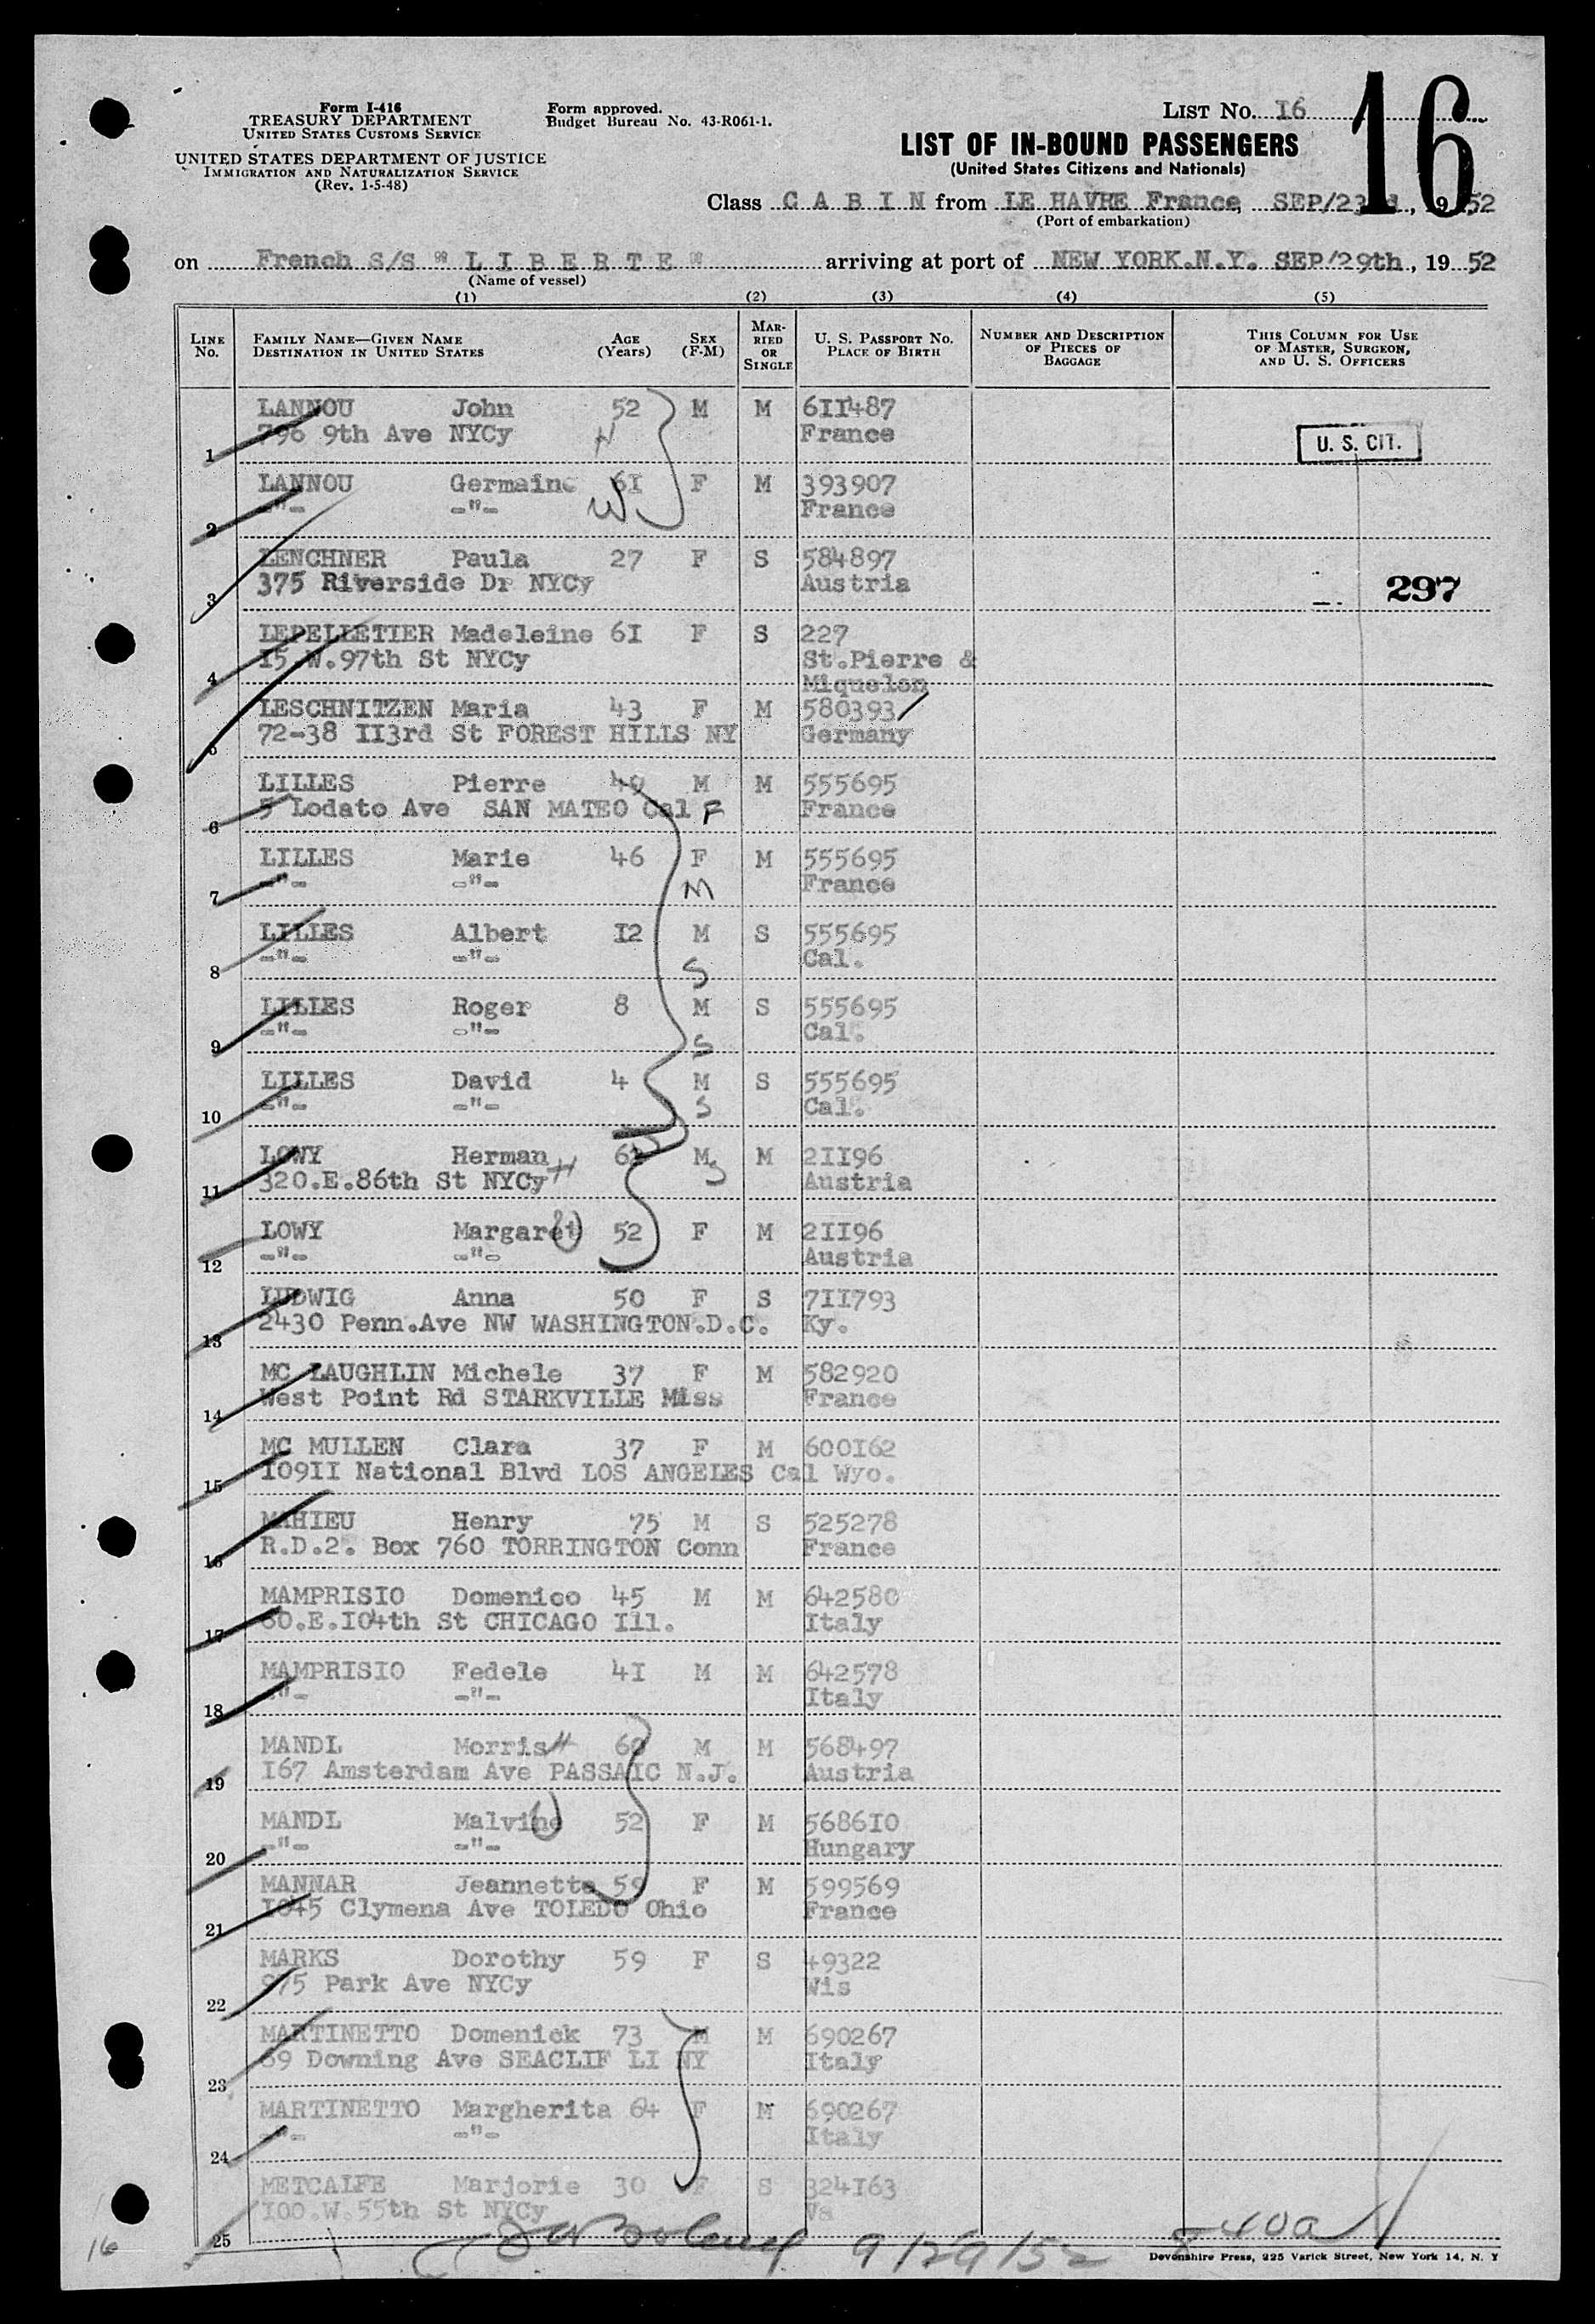 Form I-416
TREASURY DEPARTMENT
UNITED STATES CUSTOMS SERVICE
UNITED STATES DEPARTMENT OF JUSTICE
IMMIGRATION AND NATURALIZATION SERVICE
(Rev. 1-5-48)
Form approved.
Budget Bureau No. 43-R061-1.
LIST No. I6
16
LIST OF IN-BOUND PASSENGERS
(United States Citizens and Nationals)
Class C A B I N from LE HAVRE France, SEP/23 , 19 52
(Port of embarkation)
on French S/S " L I B E R T E " arriving at port of NEW YORK.N.Y. SEP/29th, 19 52
(Name of vessel)
(1) (2) (3) (4) (5)
LINE No. FAMILY NAME—GIVEN NAME DESTINATION IN UNITED STATES AGE (Years) SEX (F-M) MARRIED OR SINGLE U. S. PASSPORT No. PLACE OF BIRTH NUMBER AND DESCRIPTION OF PIECES OF BAGGAGE THIS COLUMN FOR USE OF MASTER, SURGEON, AND U. S. OFFICERS
LANNOU John 52 M M 6II487
1 796 9th Ave NYCy H France U. S. CIT.
LANNOU Germaine 6I F M 393907
2 -"- -"- W France
LENCHNER Paula 27 F S 584897
3 375 Riverside Dr NYCy Austria 297
LEPELLETIER Madeleine 6I F S 227
4 I5.W.97th St NYCy St.Pierre &
Miquelon
LESCHNITZEN Maria 43 F M 580393
5 72-38 II3rd St FOREST HILLS NY Germany
LILLES Pierre 49 M M 555695
6 5 Lodato Ave SAN MATEO Cal F France
LILLES Marie 46 F M 555695
7 -"- -"- M France
LILLES Albert I2 M S 555695
8 -"- -"- S Cal.
LILLES Roger 8 M S 555695
9 -"- -"- S Cal.
LILLES David 4 M S 555695
10 -"- -"- S Cal.
LOWY Herman H M S M 2II96
11 320.E.86th St NYCy Austria
LOWY Margaret W 52 F M 2II96
12 -"- -"- Austria
LUDWIG Anna 50 F S 7II793
13 2430 Penn.Ave NW WASHINGTON.D.C. Ky.
MC LAUGHLIN Michele 37 F M 582920
14 West Point Rd STARKVILLE Miss France
MC MULLEN Clara 37 F M 600I62
15 I09II National Blvd LOS ANGELES Cal Wyo.
MAHIEU Henry 75 M S 525278
16 R.D.2. Box 760 TORRINGTON Conn France
MAMPRISIO Domenico 45 M M 642580
17 60.E.I04th St CHICAGO Ill. Italy
MAMPRISIO Fedele 4I M M 642578
18 -"- -"- Italy
MANDL Morris H 60 M M 568497
19 I67 Amsterdam Ave PASSAIC N.J. Austria
MANDL Malvine W 52 F M 5686I0
20 -"- -"- Hungary
MANNAR Jeannette 59 F M 599569
21 I045 Clymena Ave TOLEDO Ohio France
MARKS Dorothy 59 F S 49322
22 975 Park Ave NYCy Wis
MARTINETTO Domenick 73 M M 690267
23 69 Downing Ave SEACLIF LI NY Italy
MARTINETTO Margherita 64 F M 690267
24 -"- -"- Italy
METCALFE Marjorie 30 F S 324I63
25 I00.W.55th St NYCy Va
16 9/29/52
Devonshire Press, 225 Varick Street, New York 14, N. Y